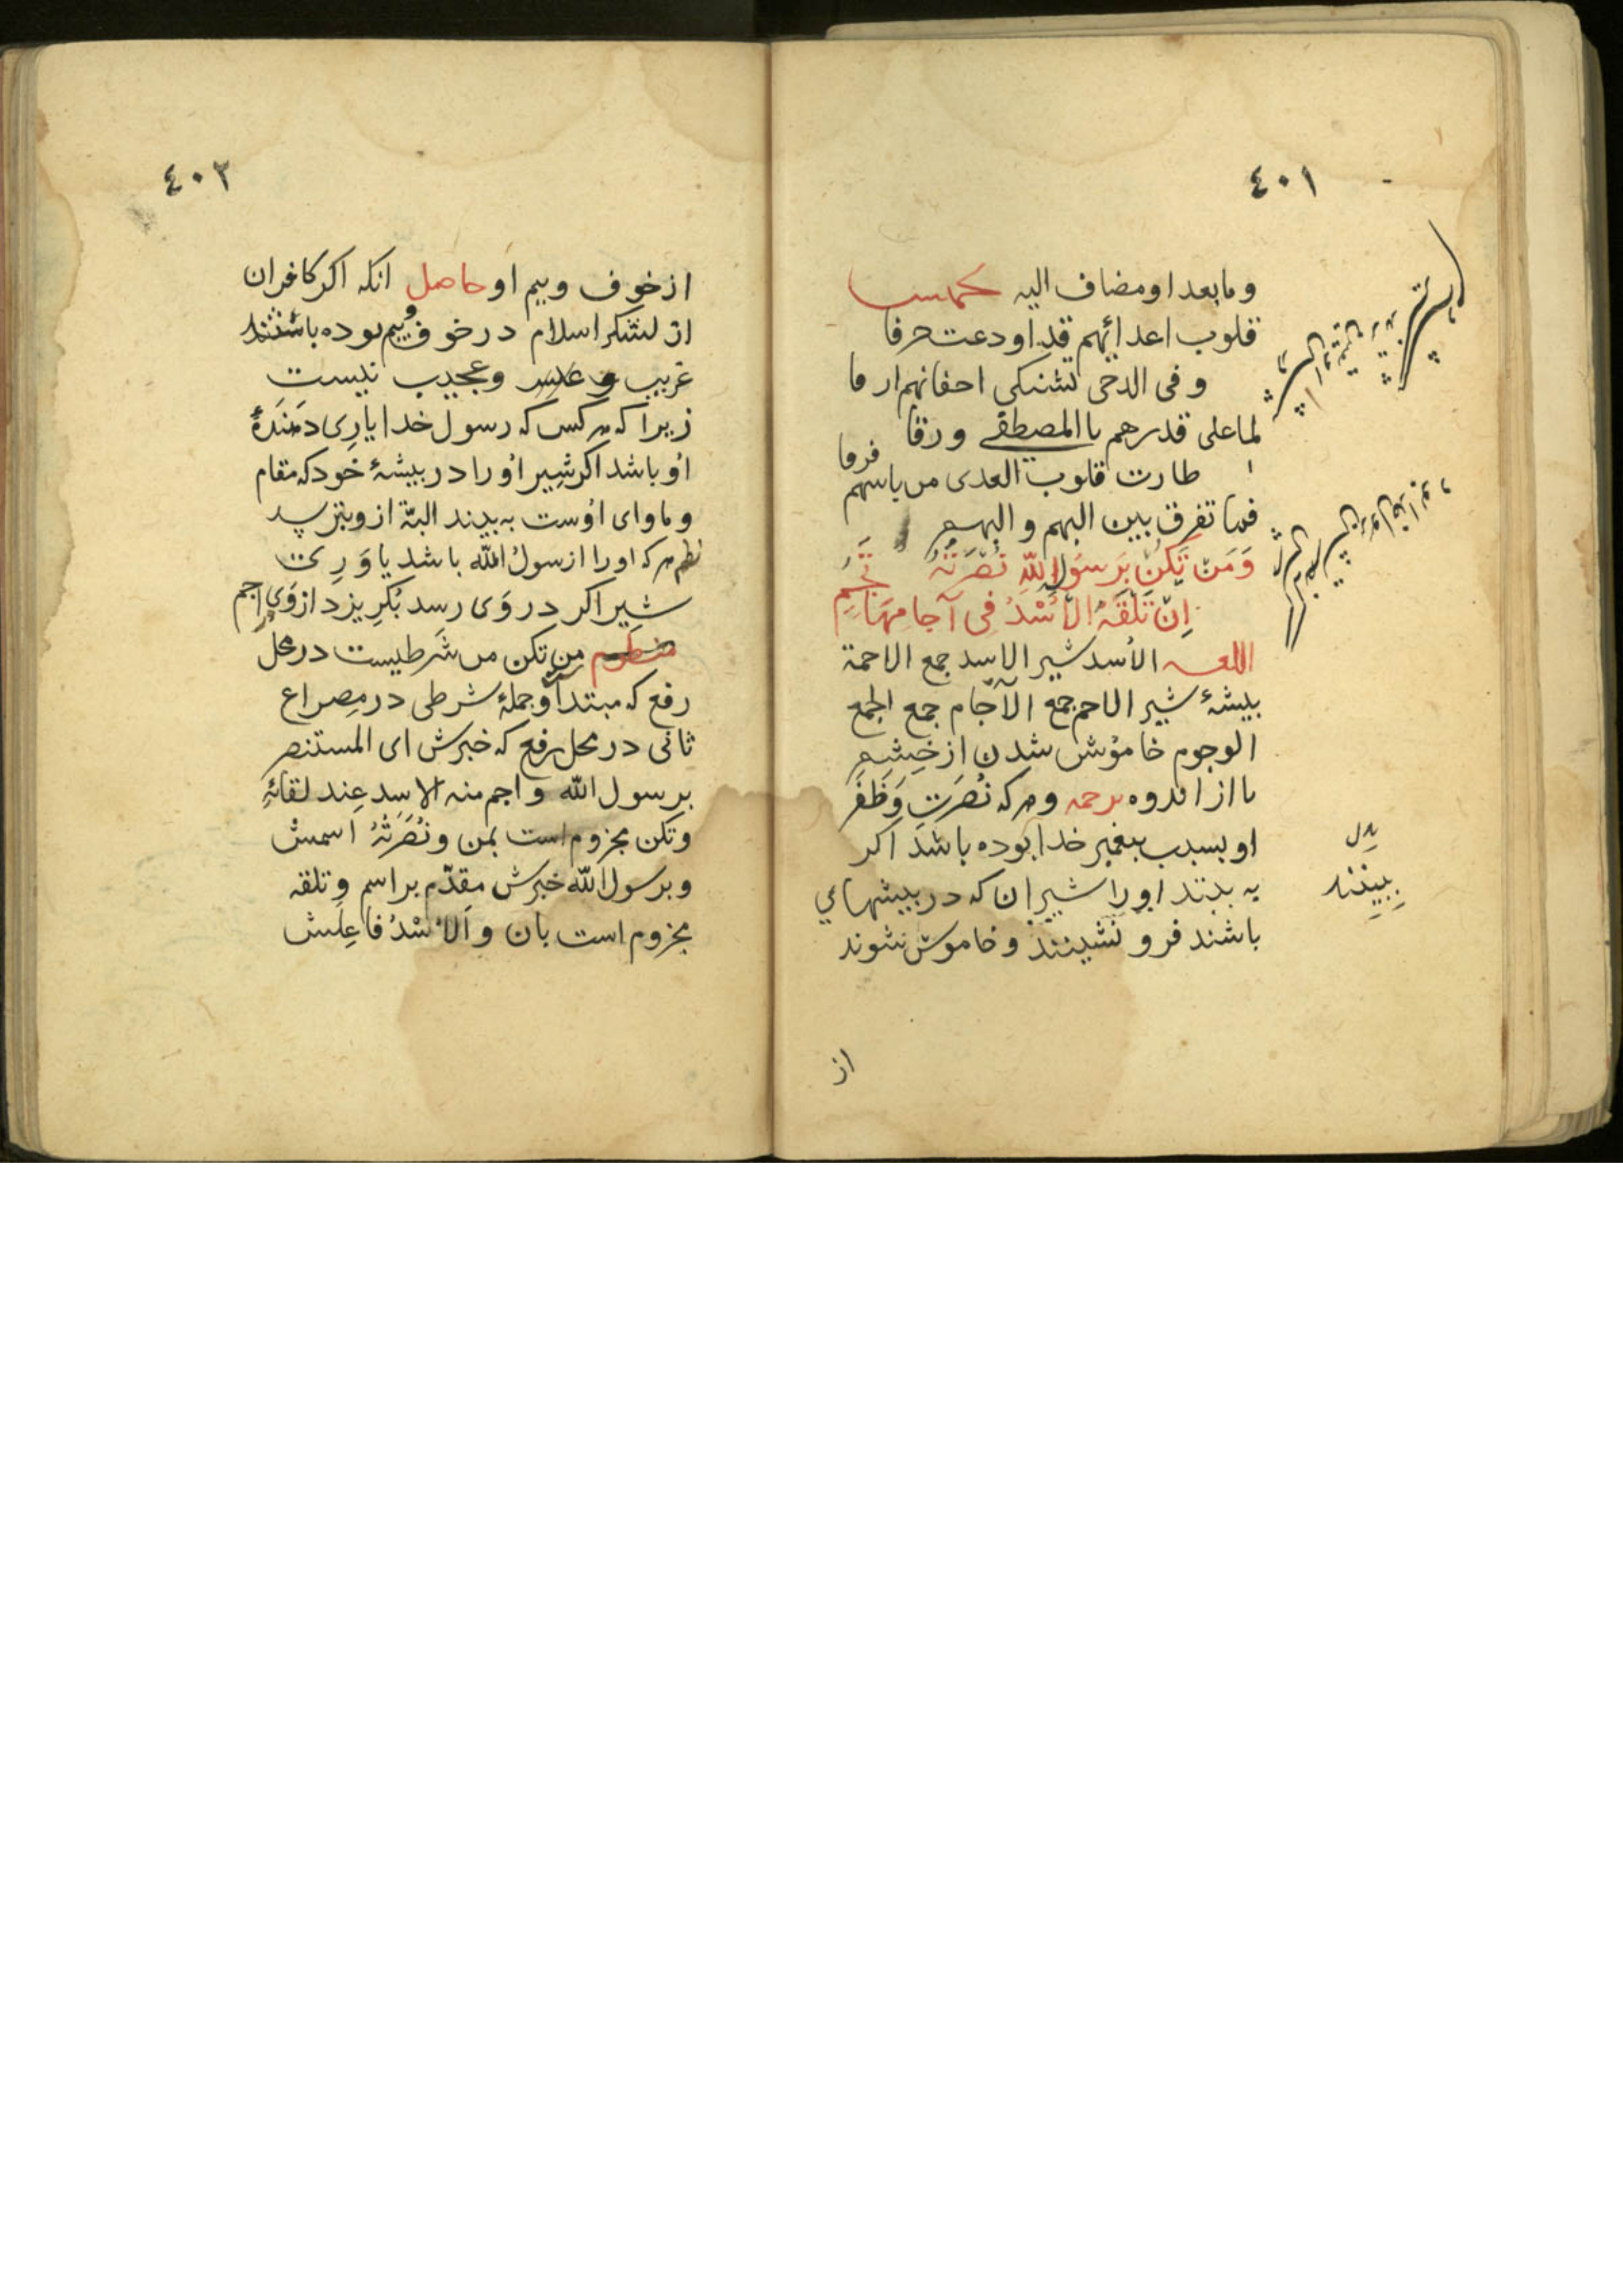 ٤٠١
وما بعد او مضاف اليه تخميس
قلوب اعدائهم قد اودعت حرقا
وفى الدجى تشتكى اجفانهم ارقا
لما على قدرهم بالمصطفى ورقا
طارت قلوب العدى من باسهم فرقا
فما تفرق بين البهم والبهم
وَمَن تَكُن بِرَسُولِ اللهِ نُصْرَتُهُ
اِن تَلْقَهُ الاُسْدُ فى آجامِهَا تَجِمِ
اللغه الأسد شير الاسد جمع الاجمة
بيشهٔ شير الاجم جمع الآجام جمع الجمع
الوجوم خاموش شدن از خشم
يا از اندوه ترجمه وهر که نصرت وَظَفَر
او بسبب پيغمبر خدا بوده باشد اکر
به بينند او را شيران که در بيشهاي
باشند فرو نشينند وخاموش شوند
بدل
ببينند
از
٤٠٢
از خوف وبيم او حاصل انکه اکر کافران
از لشکر اسلام در خوف وبيم بوده باشند
غريب وعجيب نيست
زيرا که هر کس که رسول خدا يارى دهندهٔ
او باشد اکر شير او را در بيشهٔ خود که مقام
وماواى اوست به بيند البتّه از وبترسد
نظم هر که او را از رسول الله باشد ياورى
شير اکر در وى رسد بکريزد از وى در اجم
من تكن من شرطيست در محل
رفع که مبتدا وجملهٔ شرطى در مصراع
ثانى در محل رفع که خبرش اى المستنصر
برسول الله واجم منه الاسد عند لقائهِ
وتكن مجزوم است بمن ونُصْرَتُهُ اسمش
وبرسول الله خبرش مقدّم بر اسم وتلقه
مجزوم است بان والاُسْدُ فاعلش